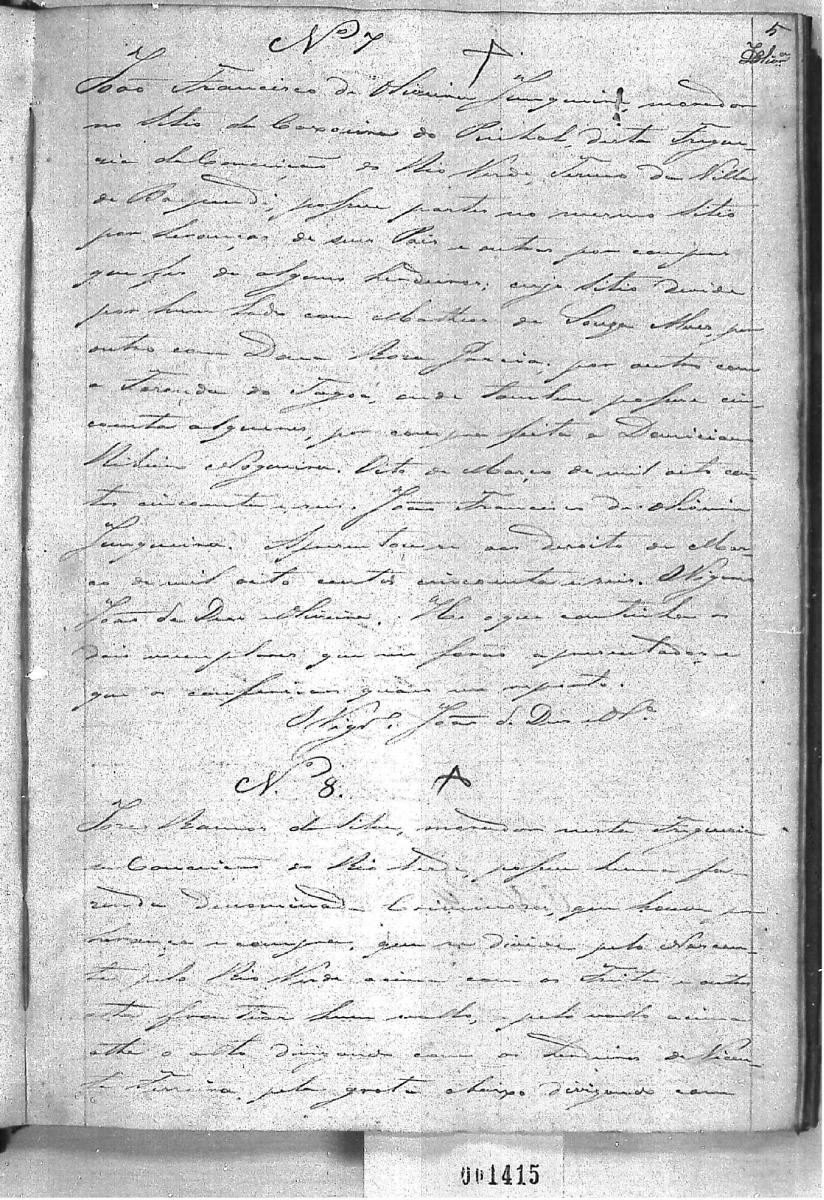 5
Nº 7
João Francisco de Oliveira Junqueira, morador
no Sitio da Caxoeira do Pinhal, desta Fregue-
sia da Conceição do Rio Verde, Termo da Villa
de Baependi, possue partes no mesmo Sitio
por heranças de seus Pais e outras por compra
que fes de alguns herdeiros; cujo Sitio devide
por hum lado com Matheus de Souza Alves, por
outro com Dona Rosa Garcia, por outro com
a Fazenda do , onde tambem possue cin-
coenta alqueires, por compra feita a
Ribeiro Nogueira. Oito de Março de mil oito cen-
tos cincoenta e seis. João Francisco de Oliveira
Junqueira. Apresentou-se aos desoito de Mar-
ço de mil oito centos cincoenta e seis. O Vigario
João de Deos Oliveira. He o que continhão os
dois exemplares que me forão apresentados, e
que os conferi aos quais me reporto.
O Vigrº João de Deos Olª
N. 8.
José Ramos da Silva, morador nesta Freguesia
da Conceição do Rio Verde, possue huma fa-
zenda denominada , que houve por
herança e compra, que se divide pelo Nascen-
te pelo Rio Verde acima com os Freitas e outros
athe frontiar hum vallo, e pelo vallo acima
athe o alto divizando com os herdeiros de Vicen-
te Ferreira, pela grota abaxo divizando com
001415